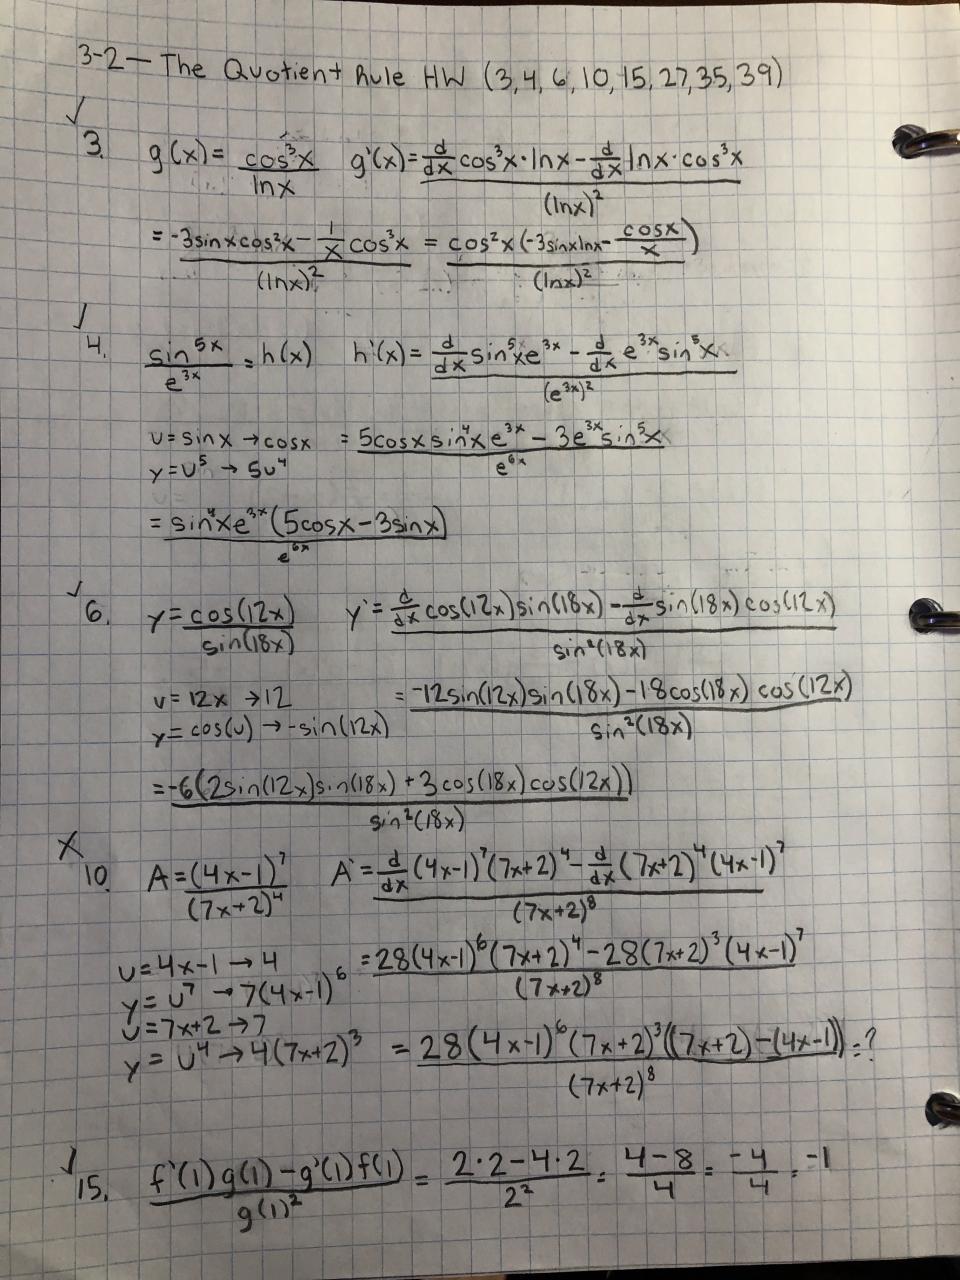 3-2 — The Quotient Rule HW (3, 4, 6, 10, 15, 27, 35, 39)
✓ 3. g(x) = cos³x / lnx   g'(x) = (d/dx cos³x · lnx − d/dx lnx · cos³x) / (lnx)²
= (-3sinxcos²x − 1/x cos³x) / (lnx)² = cos²x(-3sinxlnx − cosx/x) / (lnx)²
✓ 4. sin⁵x / e³ˣ = h(x)   h'(x) = (d/dx sin⁵xe³ˣ − d/dx e³ˣsin⁵x) / (e³ˣ)²
u = sinx → cosx   = (5cosxsin⁴xe³ˣ − 3e³ˣsin⁵x) / e⁶ˣ
y = u⁵ → 5u⁴
= sin⁴xe³ˣ(5cosx − 3sinx) / e⁶ˣ
✓ 6. y = cos(12x) / sin(18x)   y' = (d/dx cos(12x)sin(18x) − d/dx sin(18x)cos(12x)) / sin²(18x)
u = 12x → 12   = (-12sin(12x)sin(18x) − 18cos(18x)cos(12x)) / sin²(18x)
y = cos(u) → -sin(12x)
= -6(2sin(12x)sin(18x) + 3cos(18x)cos(12x)) / sin²(18x)
X 10. A = (4x-1)⁷ / (7x+2)⁴   A' = (d/dx (4x-1)⁷(7x+2)⁴ − d/dx (7x+2)⁴(4x-1)⁷) / (7x+2)⁸
u = 4x-1 → 4   = (28(4x-1)⁶(7x+2)⁴ − 28(7x+2)³(4x-1)⁷) / (7x+2)⁸
y = u⁷ → 7(4x-1)⁶
u = 7x+2 → 7
y = u⁴ → 4(7x+2)³   = 28(4x-1)⁶(7x+2)³((7x+2) − (4x-1)) / (7x+2)⁸ = ?
✓ 15. (f'(1)g(1) − g'(1)f(1)) / g(1)² = (2·2 − 4·2) / 2² = (4−8) / 4 = -4/4 = -1